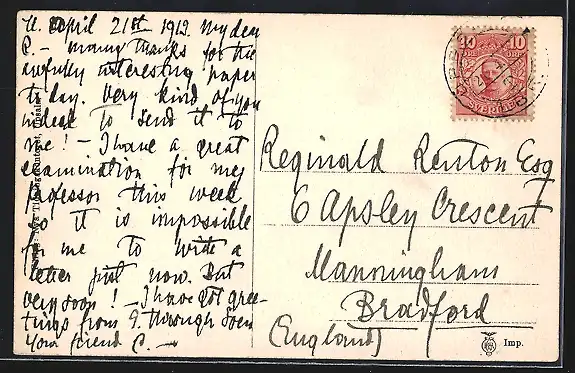 U. April 21st 1912. My dear
C. – many thanks for the
awfully interesting paper
to day. Very kind of you
indeed to send it to
me! – I have a great
examination for my
professor this week
so it is impossible
for me to write a
letter just now. But
very soon! – I have got gree-
tings from G. through Sven
Your friend C. –
10 10
SVERIGE
Reginald Renton Esq
6 Apsley Crescent
Manningham
Bradford
(England)
Imp.